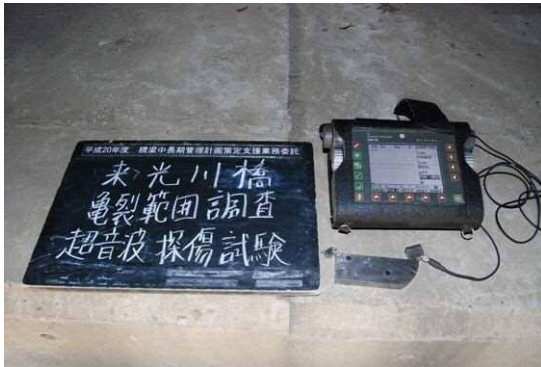 平成20年度 橋梁中長期管理計画策定支援業務委託
来光川橋
亀裂範囲調査
超音波探傷試験